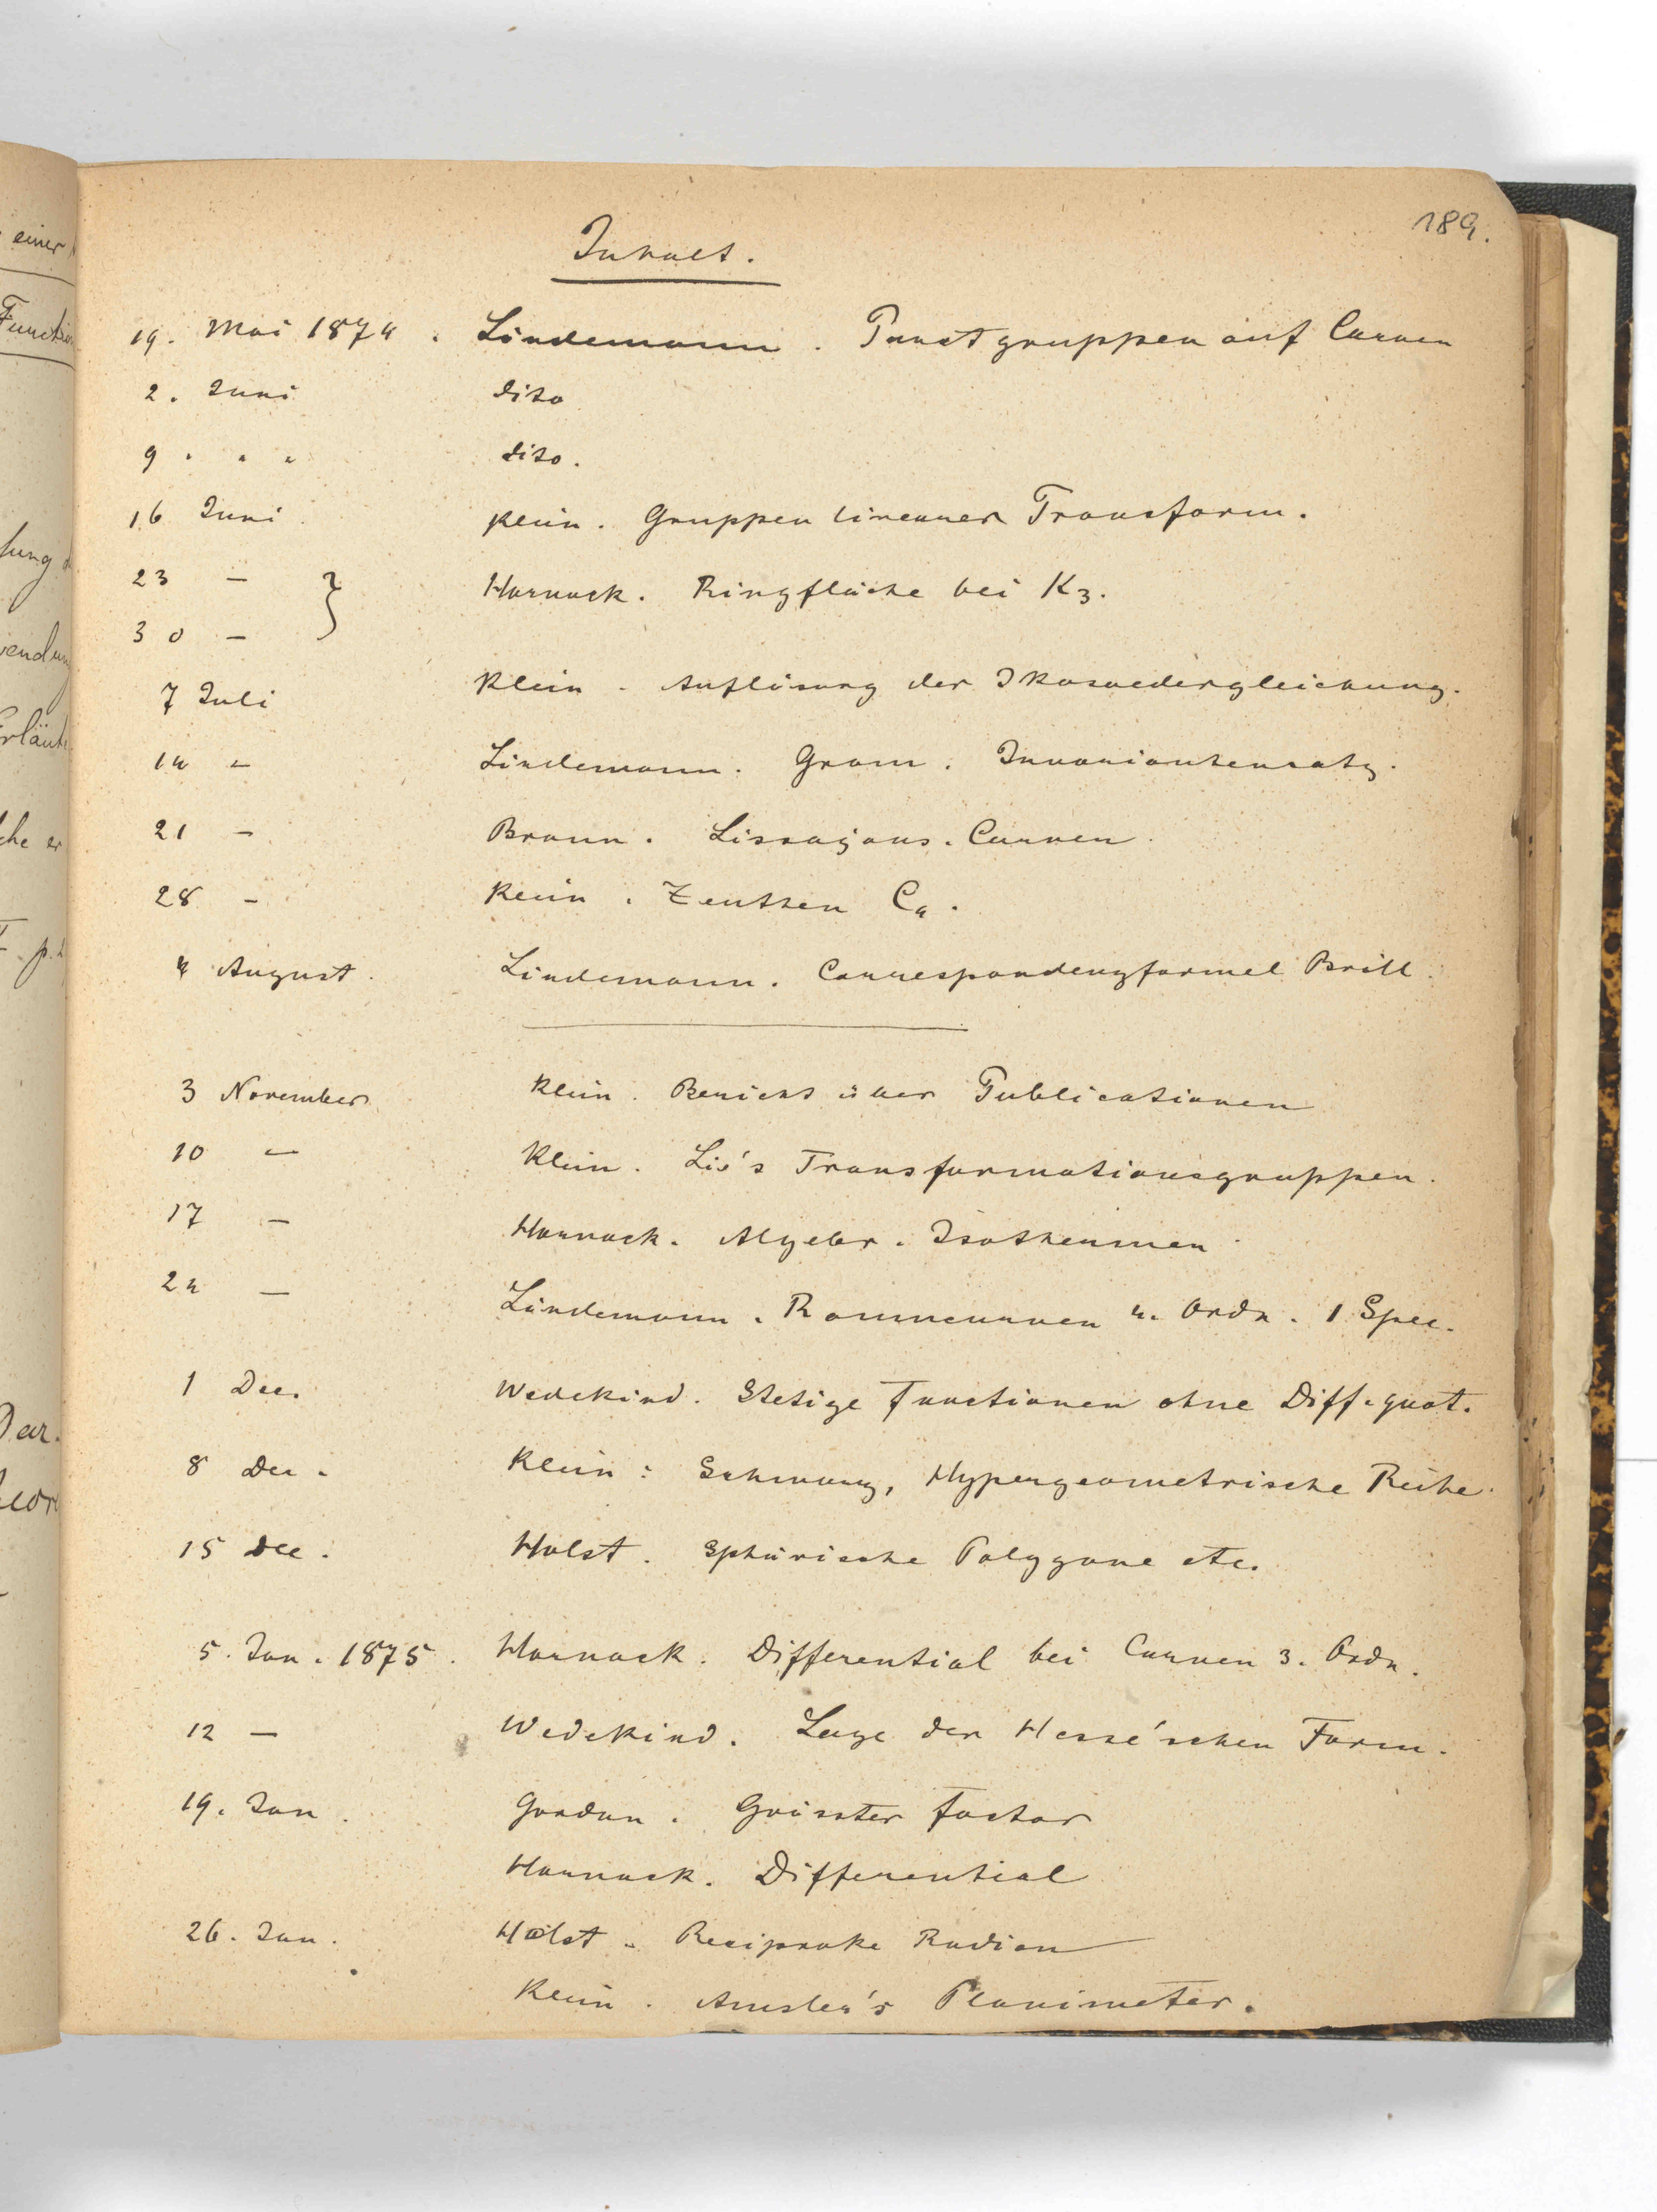 189.
Inhalt.
19. Mai 1874. Lindemann. Punctgruppen auf Curven
2. Juni dito
9 " " " dito.
16 Juni Klein. Gruppen linearer Transform.
23 – } Harnack. Ringfläche bei K3.
30 –
7 Juli Klein. Auflösung der Ikosaedergleichung.
14 – Lindemann. Gram. Invariantensatz.
21 – Braun. Lissajous. Curven
28 – Klein. Zeuthen C4.
4 August. Lindemann. Correspondenzformel Brill.
3 November Klein. Bericht über Publicationen
10 – Klein. Lie's Transformationsgruppen.
17 – Harnack. Algebr. Isothermen
24 – Lindemann. Raumcurven 4. Ordn. 1 Spec.
1 Dec. Wedekind. Stetige Functionen ohne Diff.quot.
8 Dec. Klein: Schwarz, Hypergeometrische Reihe.
15 Dec. Holst. Sphärische Polygone etc.
5. Jan. 1875. Harnack. Differential bei Curven 3. Ordn.
12 – Wedekind. Lage der Hesse'schen Form.
19. Jan. Gordan. Grösster Factor
Harnack. Differential
26. Jan. Holst. Reciproke Radien
Klein. Amsler's Planimeter.
einer
Functio
lung d
wendun
Erläut
che er
F. p.
Dar.